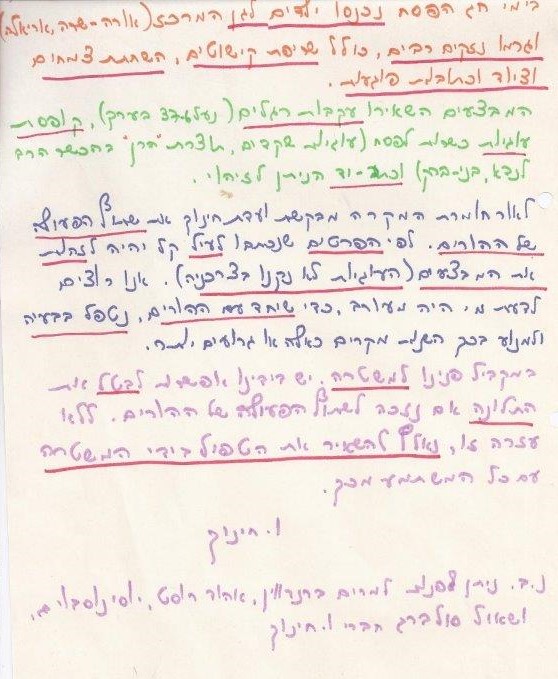 בימי חג הפסח נכנסו ילדים לגן המרכז (אורה-שרה, אריאלה)
וגרמו נזקים רבים, כולל שריפת קישוטים, השחתת צמחים
וציוד וכתובות פוגעות.
המבצעים השאירו עקבות רגלים (נעל 37 בערך), קופסת
עוגיות כשרות לפסח (עוגיות שקדים, תוצרת "הרן" בהכשר הרב
לנדא, בני-ברק) וכתב-יד הניתן לזיהוי.
לאור חומרת המקרה מבקשת ועדת חינוך את שתוף הפעולה
של ההורים. לפי הפרטים שנכתבו לעיל קל יהיה לזהות
את המבצעים (העוגיות לא נקנו בצרכניה). אנו רוצים
לדעת מי היה מעורב, כדי שיחד עם ההורים, נטפל בבעיה
ולמנוע בכך השנות מקרים כאלה או גרועים יותר.
במקביל פנינו למשטרה. יש בידינו אפשרות לבטל את
התלונה אם נזכה לשתוף הפעולה של ההורים. ללא
עזרה זו, נאלץ להשאיר את הטפול בידי המשטרה
עם כל המשתמע מכך.
ו. חינוך
נ.ב. ניתן לפנות למרים ברנדווין, אהוד
ושאול סולברג חברי ו. חינוך